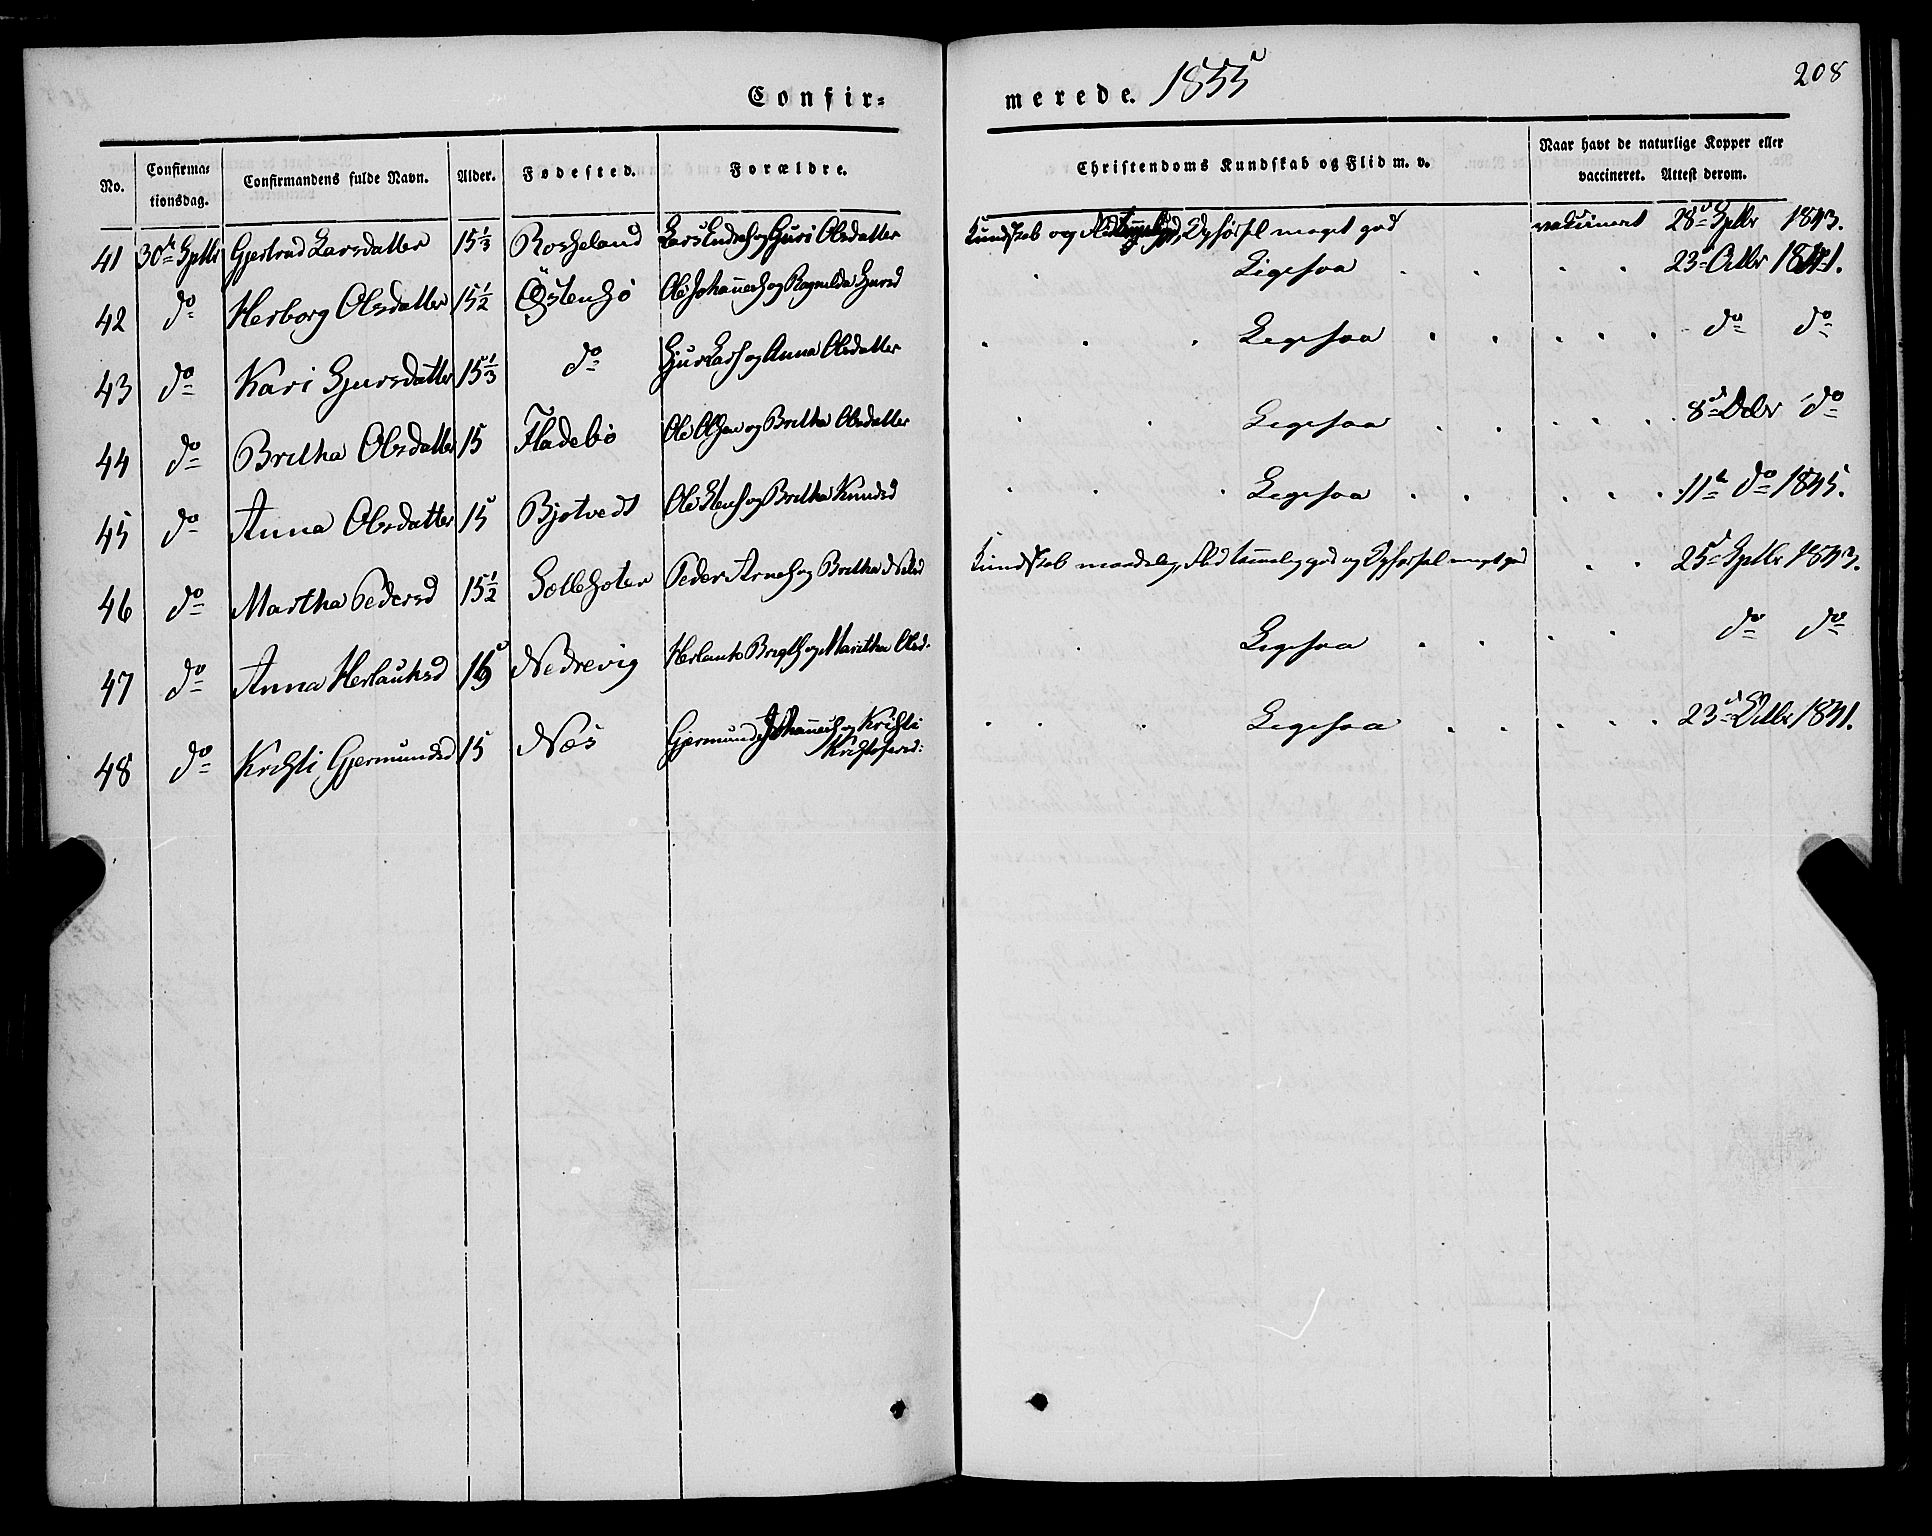 Confir=
merede. 1855
208
No. Confirma= tionsdag. Confirmandens fulde Navn. Alder. Fødested. Forældre. Christendoms Kundskab og Flid m. v. Naar havt de naturlige Kopper eller vaccineret. Attest derom.
41 30te Sptbr Gjertrud Larsdatter 15 1/3 Rosseland Lars Endres og Guri Olsdatter Kundskab og Flid Opførsel meget god vakcineret 28de Sptbr 1843.
42 do Herborg Olsdatter 15 1/2 Östensö Ole Johannes og Ragnilda Sjursd Ligesaa 23de Octbr 1841.
43 do Kari Sjursdatter 15 1/3 do Sjur Lars og Anna Olsdatter Ligesaa do do
44 do Britha Olsdatter 15 Fladebø Ole Olsen og Britha Olsdatter Ligesaa 8de Decbr do
45 do Anna Olsdatter 15 Bjotvedt Ole Stens og Britha Knudsd Ligesaa 11te do 1845.
46 do Martha Pedersd 15 1/2 Peder Arnes og Britha Nilsd Kundskab maadelig, Flid temmelig god og Opførsel meget god 25de Sptbr 1843.
47 do Anna Herlauksd Nedrevig Herlauk og Maritha Olsd. Ligesaa do do
48 do Kristi Gjermundsd 15 Nes Gjermund Johannes og Kristi Kristofersd: Ligesaa 23de Octbr 1841.